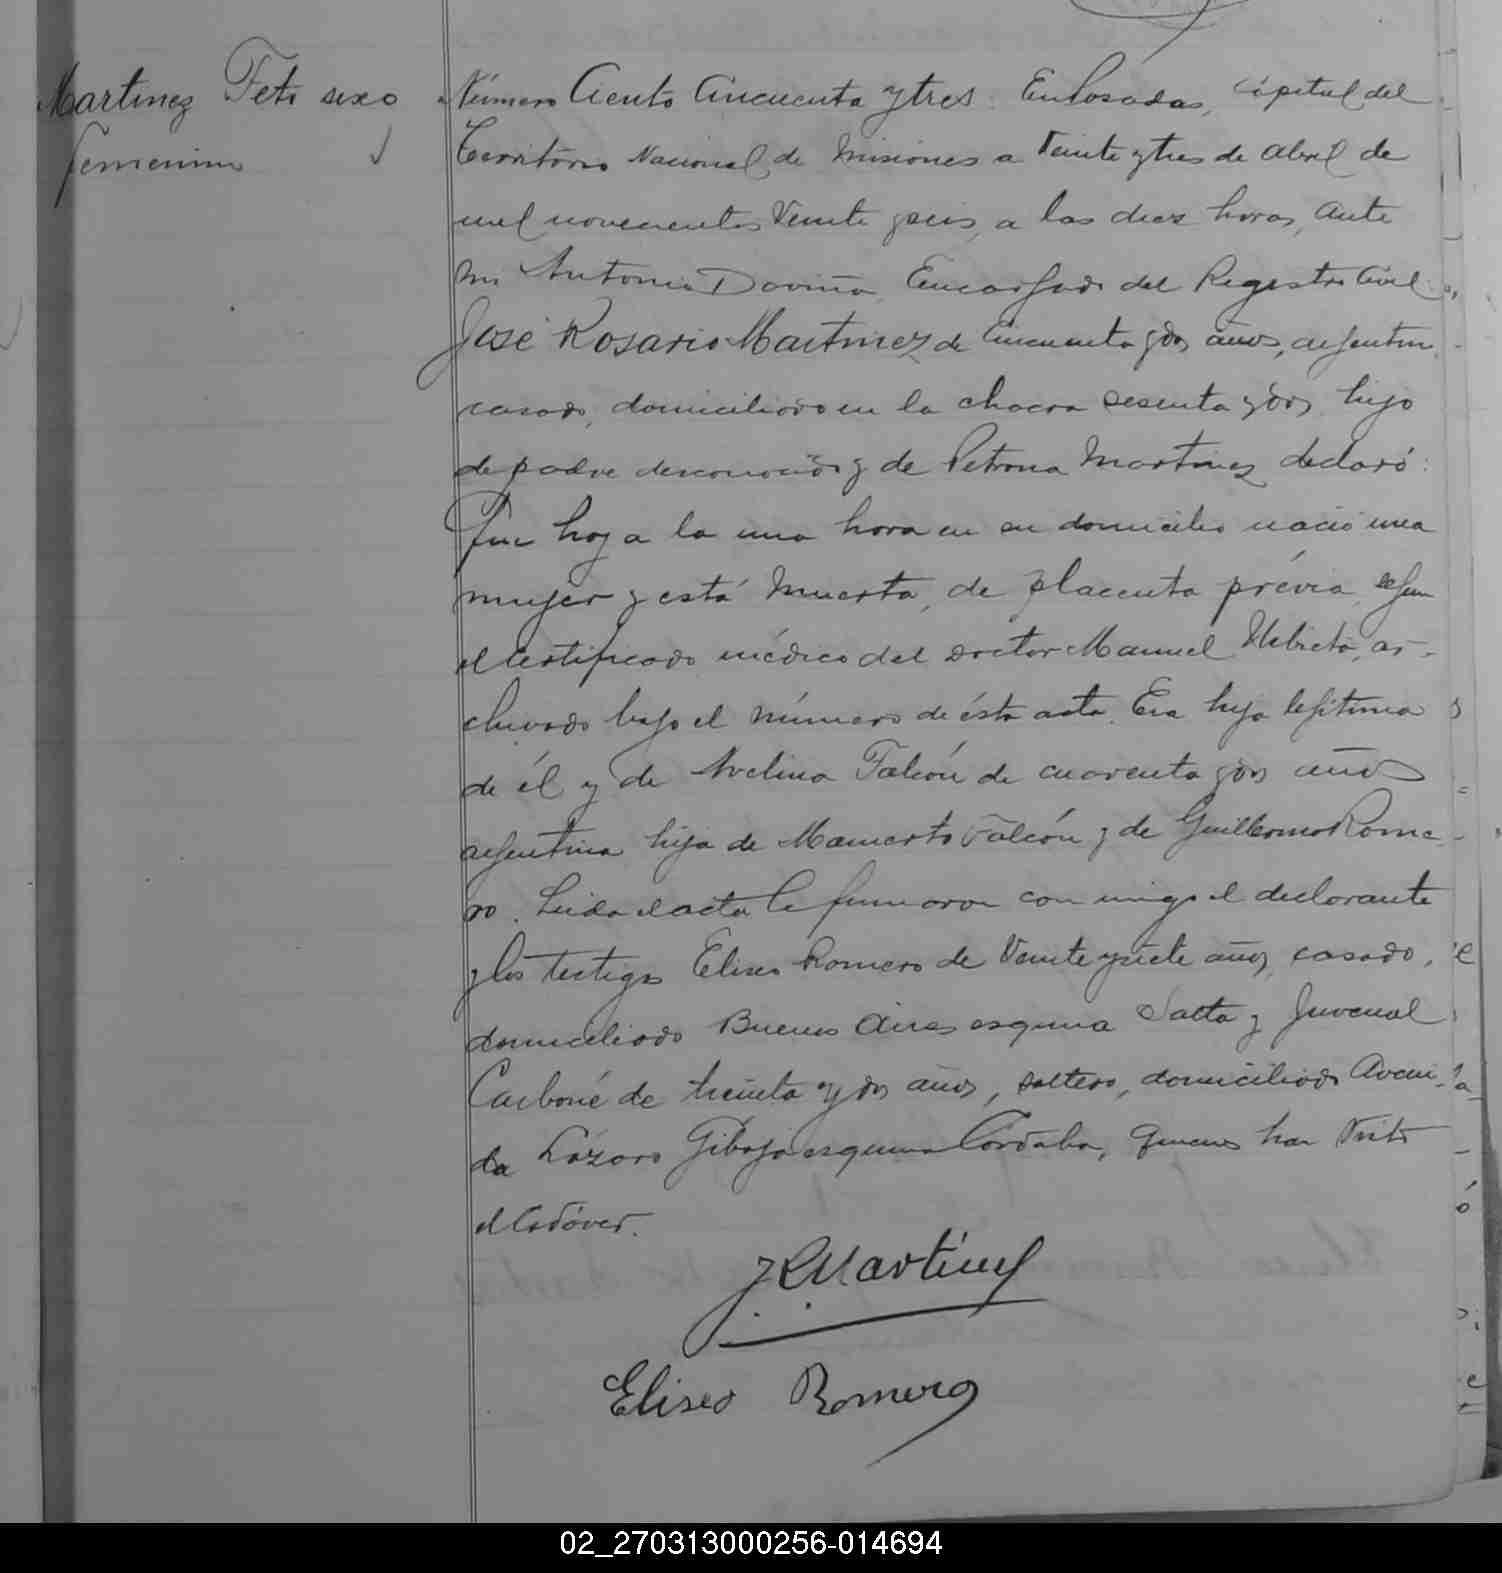 Martinez Feto sexo
femenino
Número Ciento Cincuenta y tres. En Posadas, Capital del
Territorio Nacional de Misiones a Veinte y tres de Abril de
mil novecientos Veinte y seis, a las diez horas, Ante
mi Antonio Daviña, Encargado del Registro Civil
José Rosario Martinez de Cincuenta y dos años, argentino
casado, domiciliado en la chacra sesenta y dos, hijo
de padre desconocido y de Petrona Martinez declaró:
Que hoy a la una hora en su domicilio nació una
mujer y está Muerta, de placenta prévia, según
el Certificado médico del doctor Manuel ar-
chivado bajo el número de ésta acta. Era hija legitima
de él y de Avelina Falcón de cuarenta y dos años
argentina hija de Mamerto Falcón y de Rome-
ro. Leida el acta la firmaron con migo el declarante
y los testigos Eliseo Romero de Veinte y siete años, casado,
domiciliado Buenos Aires esquina Salta y Juvenal
Carboné de treinta y dos años, soltero, domiciliado Aveni-
da Lázaro Gibaja esquina Córdoba, quienes han Visto
el Cadáver.
J R Martinez
Eliseo Romero
02_270313000256-014694